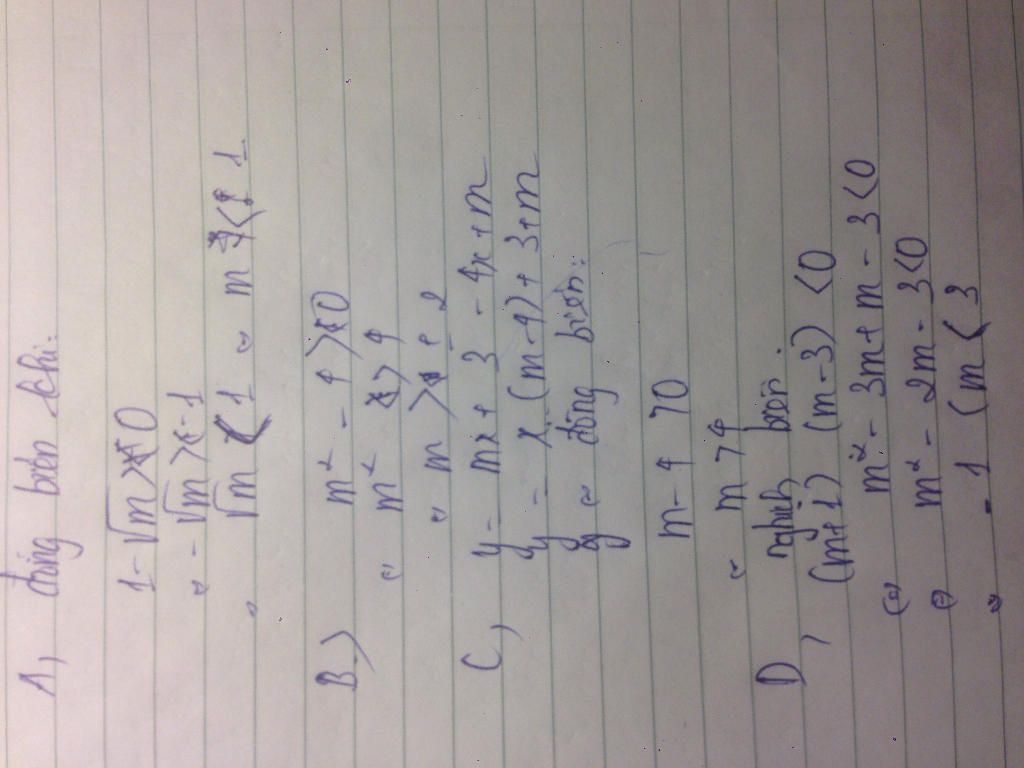 A, đồng biến khi:
1 - √m > 0
⇔ - √m > -1
⇔ √m < 1 ⇔ m < 1
B,) m² - 4 > 0
⇔ m² > 4
⇔ m > ± 2
C, y = mx + 3 - 4x + m
y = x (m - 4) + 3 + m
y ⇔ đồng biến:
m - 4 > 0
⇔ m > 4
D, nghịch biến.
(m + 1) (m - 3) < 0
⇔ m² - 3m + m - 3 < 0
⇔ m² - 2m - 3 < 0
⇔ - 1 < m < 3